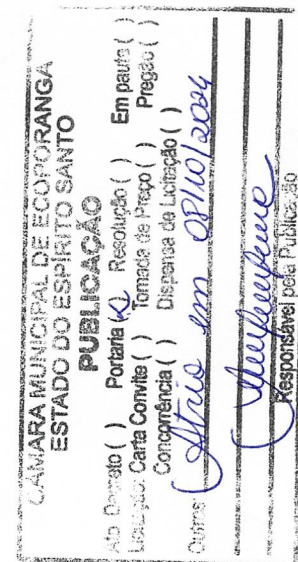 CÂMARA MUNICIPAL DE ECOPORANGA
ESTADO DO ESPÍRITO SANTO
PUBLICAÇÃO
Ato Decreto ( ) Portaria (x) Resolução ( ) Em pauta ( )
Licitação: Carta Convite ( ) Tomada de Preço ( ) Pregão ( )
Concorrência ( ) Dispensa de Licitação ( )
Outros: Átrio em 08/10/2024
Responsável pela Publicação